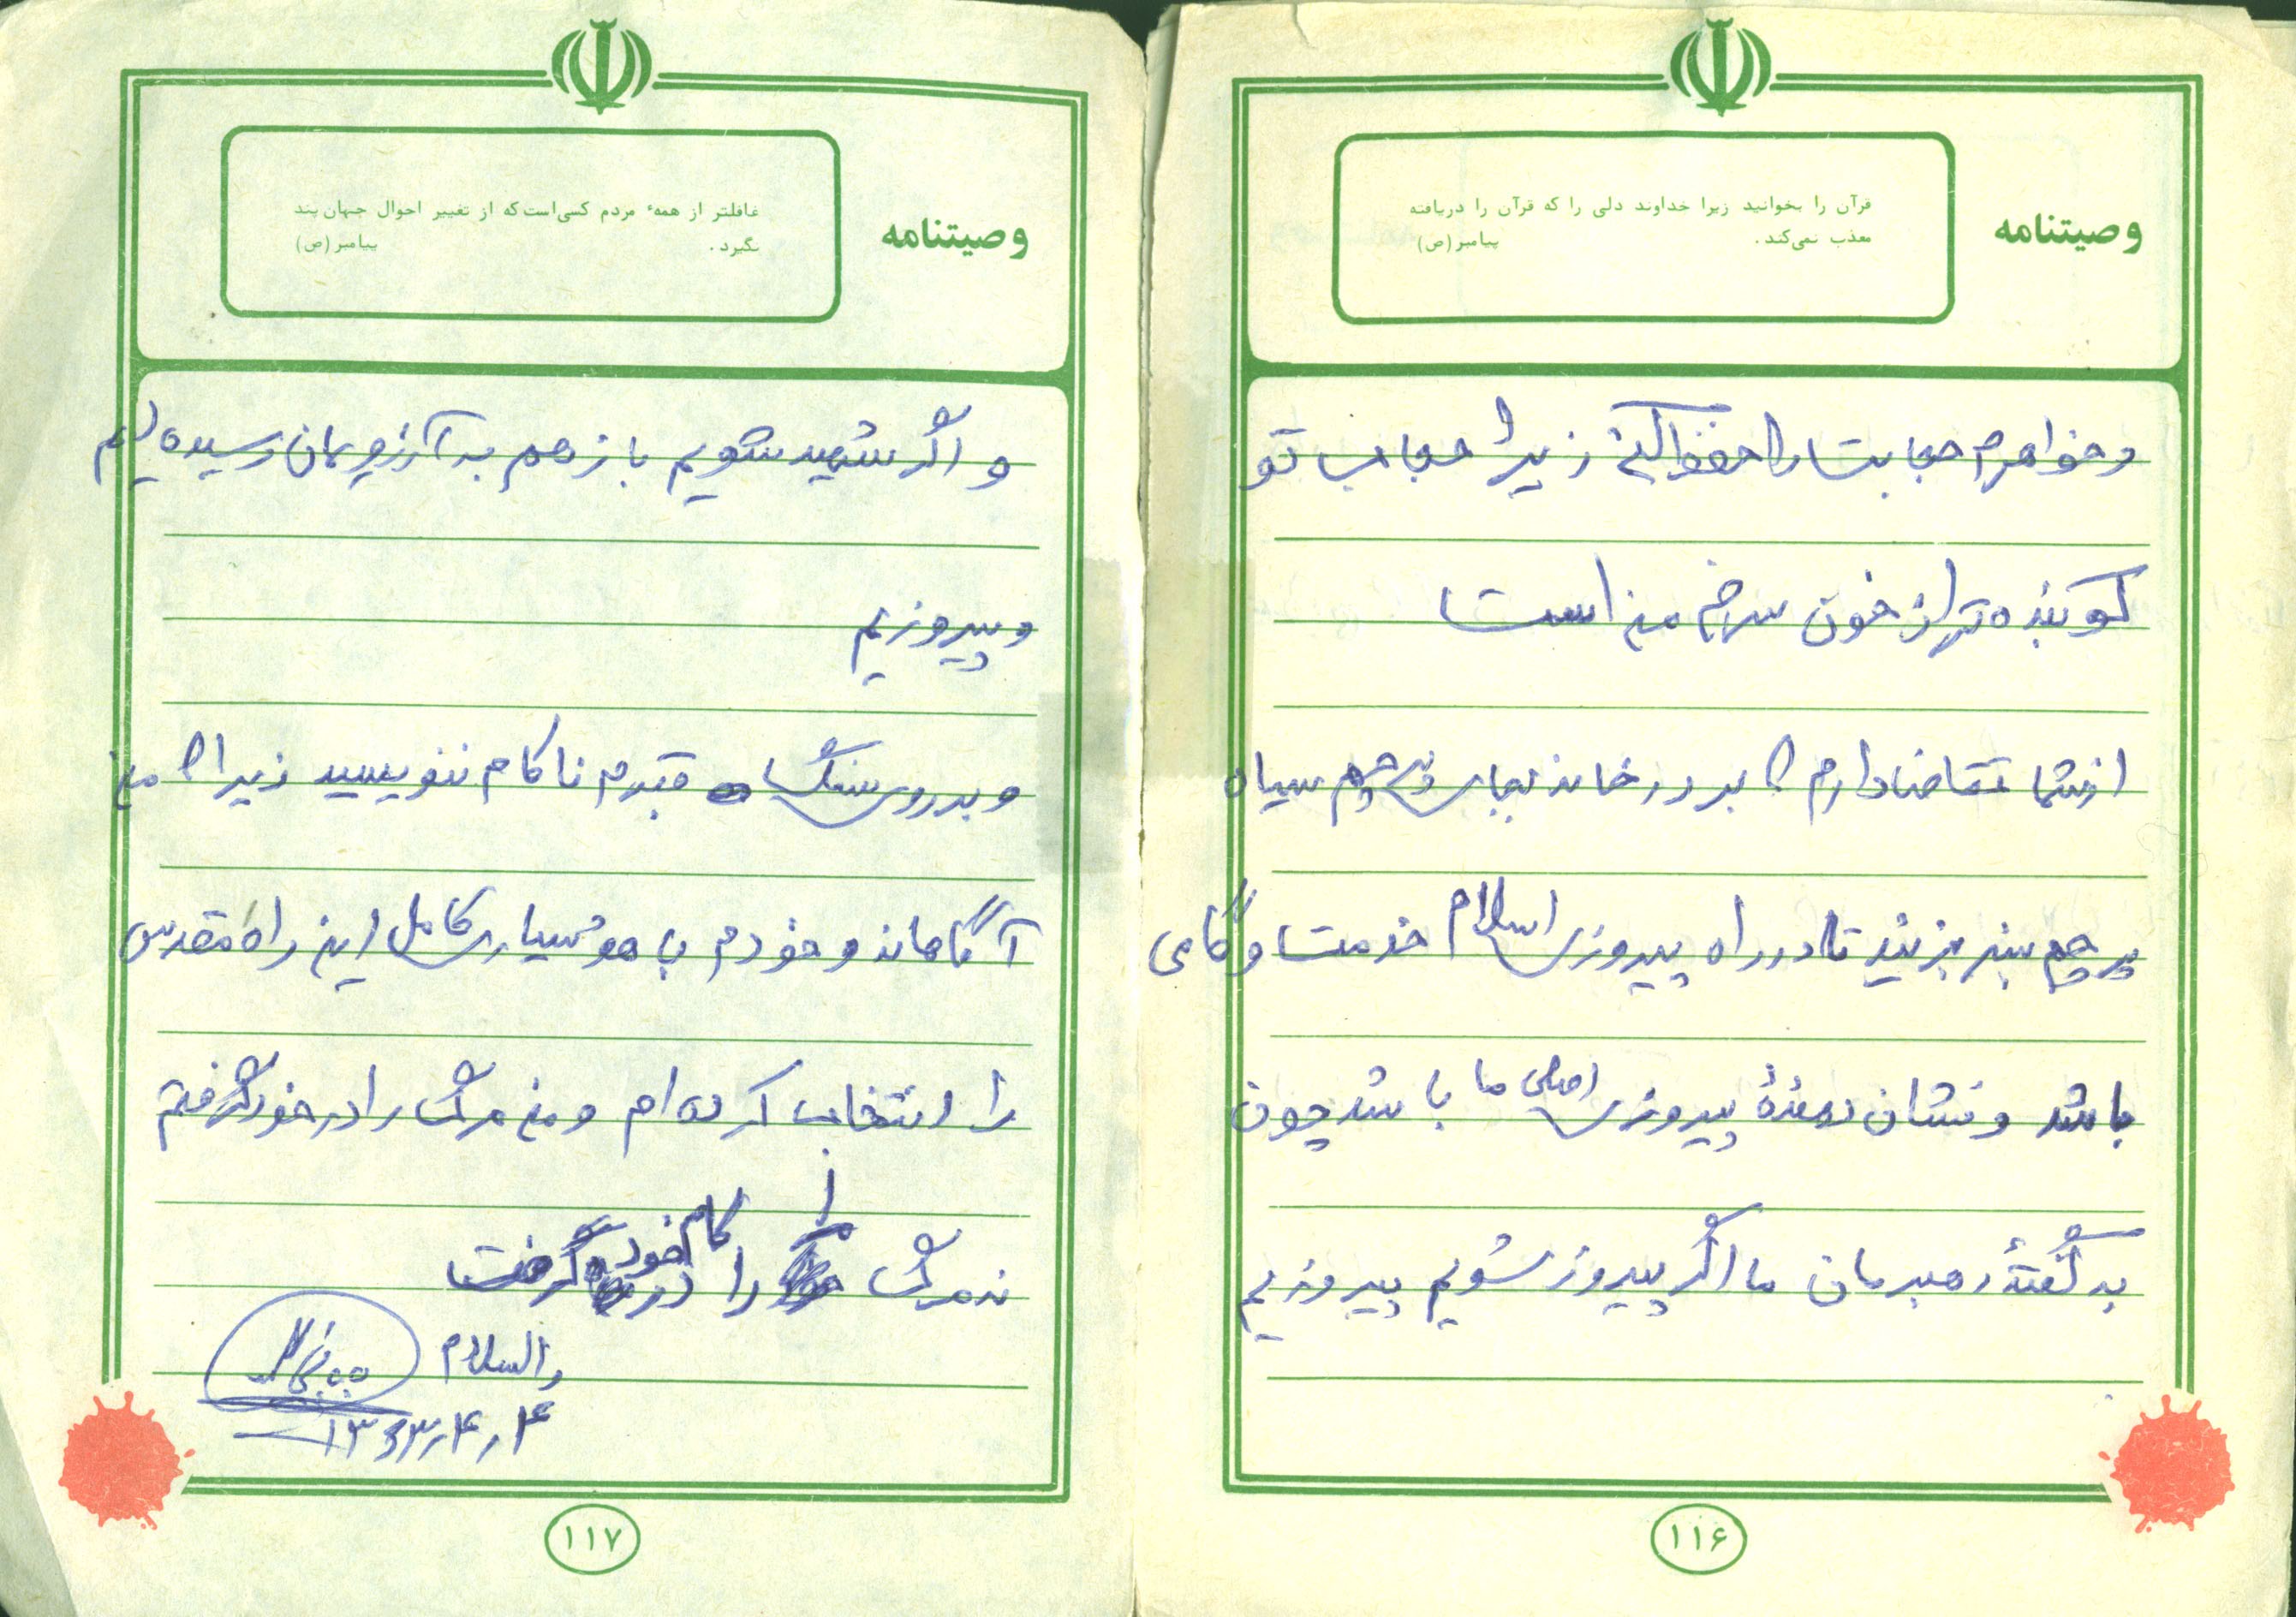 وصیتنامه
قرآن را بخوانید زیرا خداوند دلی را که قرآن را دریافته
معذب نمی‌کند. پیامبر (ص)
وخواهرم حجابت را حفظ کن زیرا حجاب تو
کوبنده تر از خون سرخ من است
از شما تقاضا دارم که بر در خانه بجای پرچم سیاه
پرچم سبز بزنید تا در راه پیروزی اسلام خدمت و گامی
باشد و نشان دهندهٔ پیروزی اصلی ما باشد چون
به گفتهٔ رهبرمان ما اگر پیروز شویم پیروزیم
۱۱۶
وصیتنامه
غافلتر از همهٔ مردم کسی است که از تغییر احوال جهان پند
نگیرد. پیامبر (ص)
و اگر شهید شویم باز هم به آرزویمان رسیده ایم
و پیروزیم
و بر روی سنگ قبرم ناکام ننویسید زیرا که من
آگاهانه و خودم با هوشیاری کامل این راه مقدس
را انتخاب کرده ام و من مرگ را در خود گرفتم
نه مرگ مرا در کام خود گرفت
والسلام
۱۳۶۳٫۴٫۴
۱۱۷